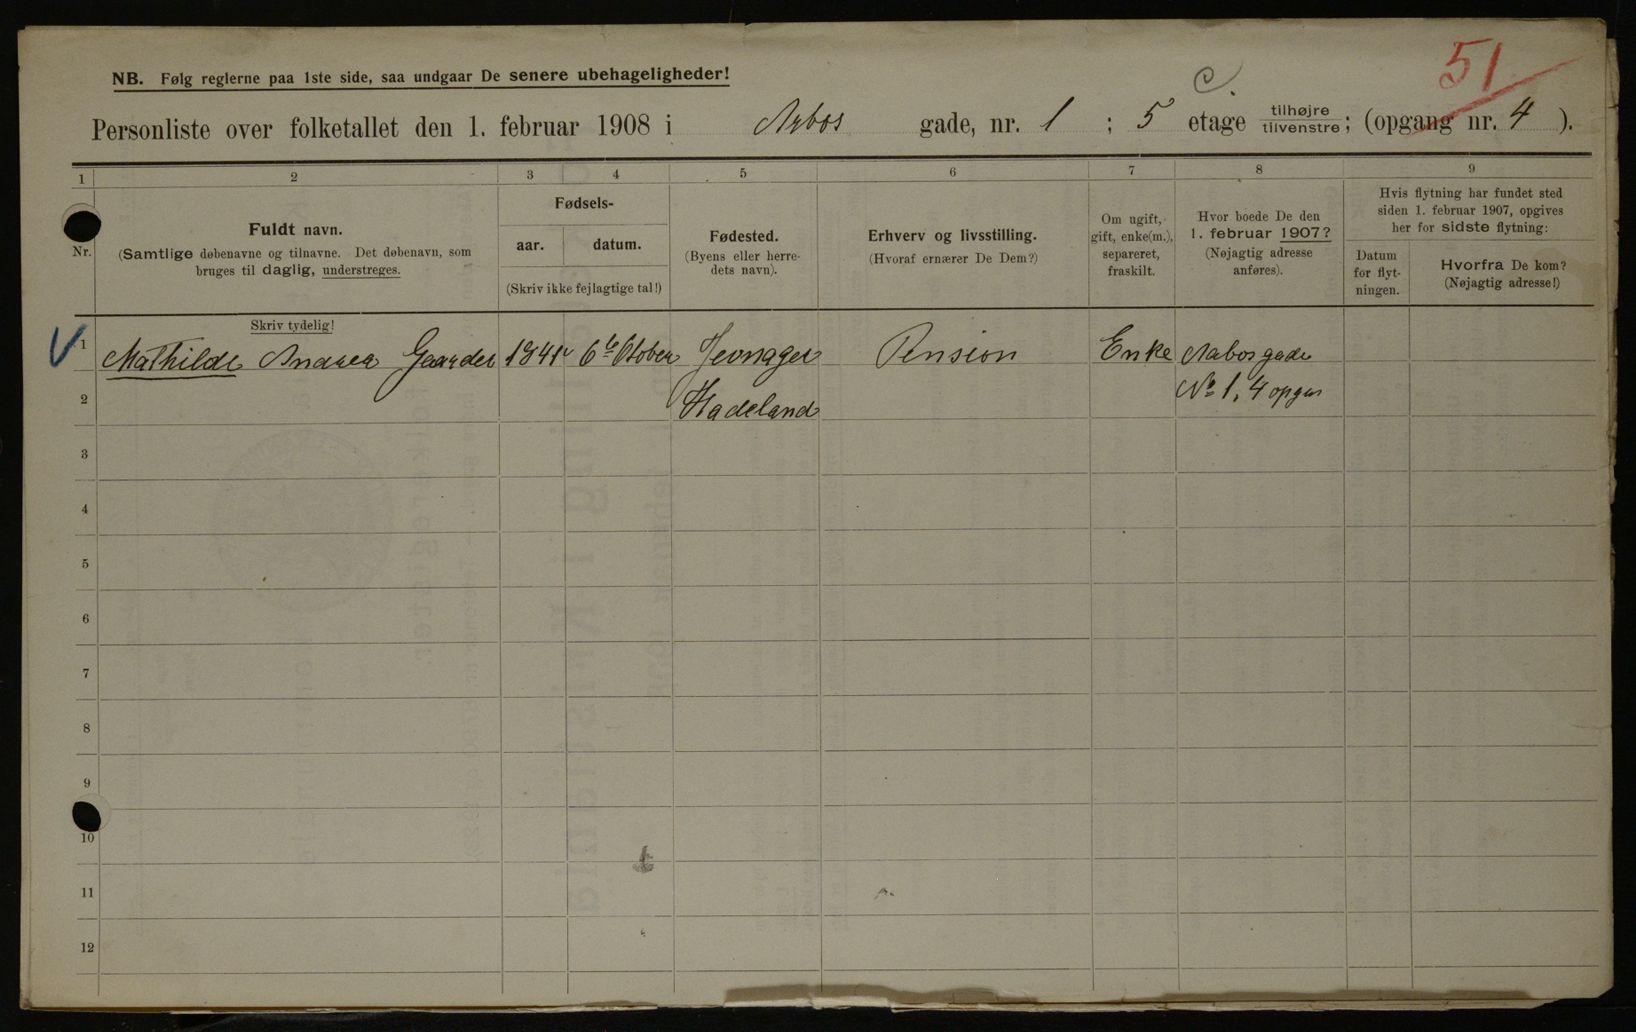 51
NB. Følg reglerne paa 1ste side, saa undgaar De senere ubehageligheder!
c.
Personliste over folketallet den 1. februar 1908 i Arbos gade, nr. 1 ; 5 etage tilhøjre tilvenstre ; (opgang nr. 4 ).
1 2 3 4 5 6 7 8 9
Nr.
Fuldt navn.
(Samtlige døbenavne og tilnavne. Det døbenavn, som
bruges til daglig, understreges.
Fødsels-
aar. datum.
(Skriv ikke fejlagtige tal!)
Fødested.
(Byens eller herre-
dets navn).
Erhverv og livsstilling.
(Hvoraf ernærer De Dem?)
Om ugift,
gift, enke(m.),
separeret,
fraskilt.
Hvor boede De den
1. februar 1907?
(Nøjagtig adresse
anføres).
Hvis flytning har fundet sted
siden 1. februar 1907, opgives
her for sidste flytning:
Datum
for flyt-
ningen.
Hvorfra De kom?
(Nøjagtig adresse!)
Skriv tydelig!
1 Mathilde Andrea Gaarder 1841 6te Otober Jevnager Pension Enke Aabosgade
2 Hadeland No 1, 4 opgan
3
4
5
6
7
8
9
10
11
12